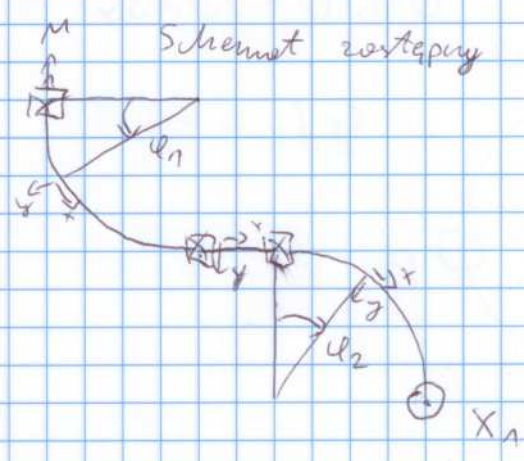 M
Schemat zastępczy
φ1
y x
x
y
x
y
φ2
X1